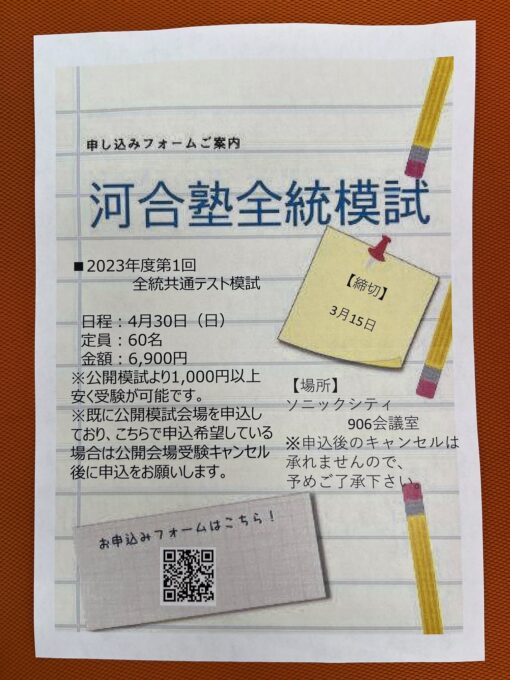 申し込みフォームご案内
河合塾全統模試
■2023年度第1回
全統共通テスト模試
日程：4月30日（日）
定員：60名
金額：6,900円
※公開模試より1,000円以上
安く受験が可能です。
※既に公開模試会場を申込し
ており、こちらで申込希望している
場合は公開会場受験キャンセル
後に申込をお願いします。
【締切】
3月15日
【場所】
ソニックシティ
906会議室
※申込後のキャンセルは
承れませんので、
予めご了承下さい。
お申込みフォームはこちら！